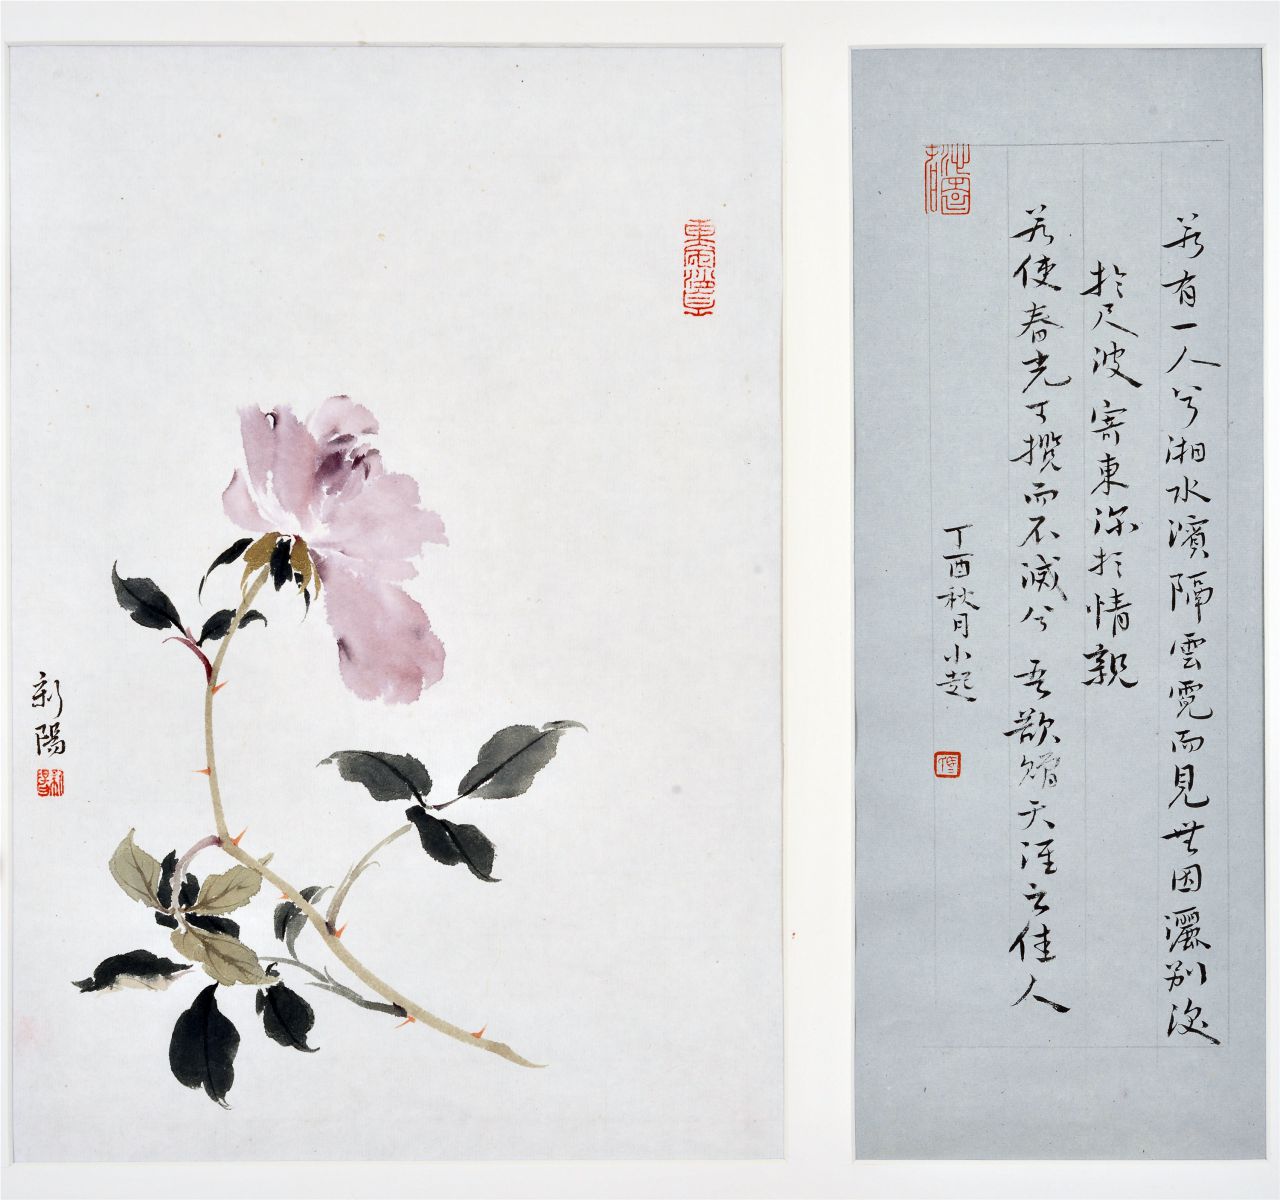 若有一人兮湘水濱隔雲霓而見無因灑別淚
於尺波寄東流於情親
若使春光可攬而不滅兮吾欲贈天涯之佳人
丁酉秋月小起
新陽